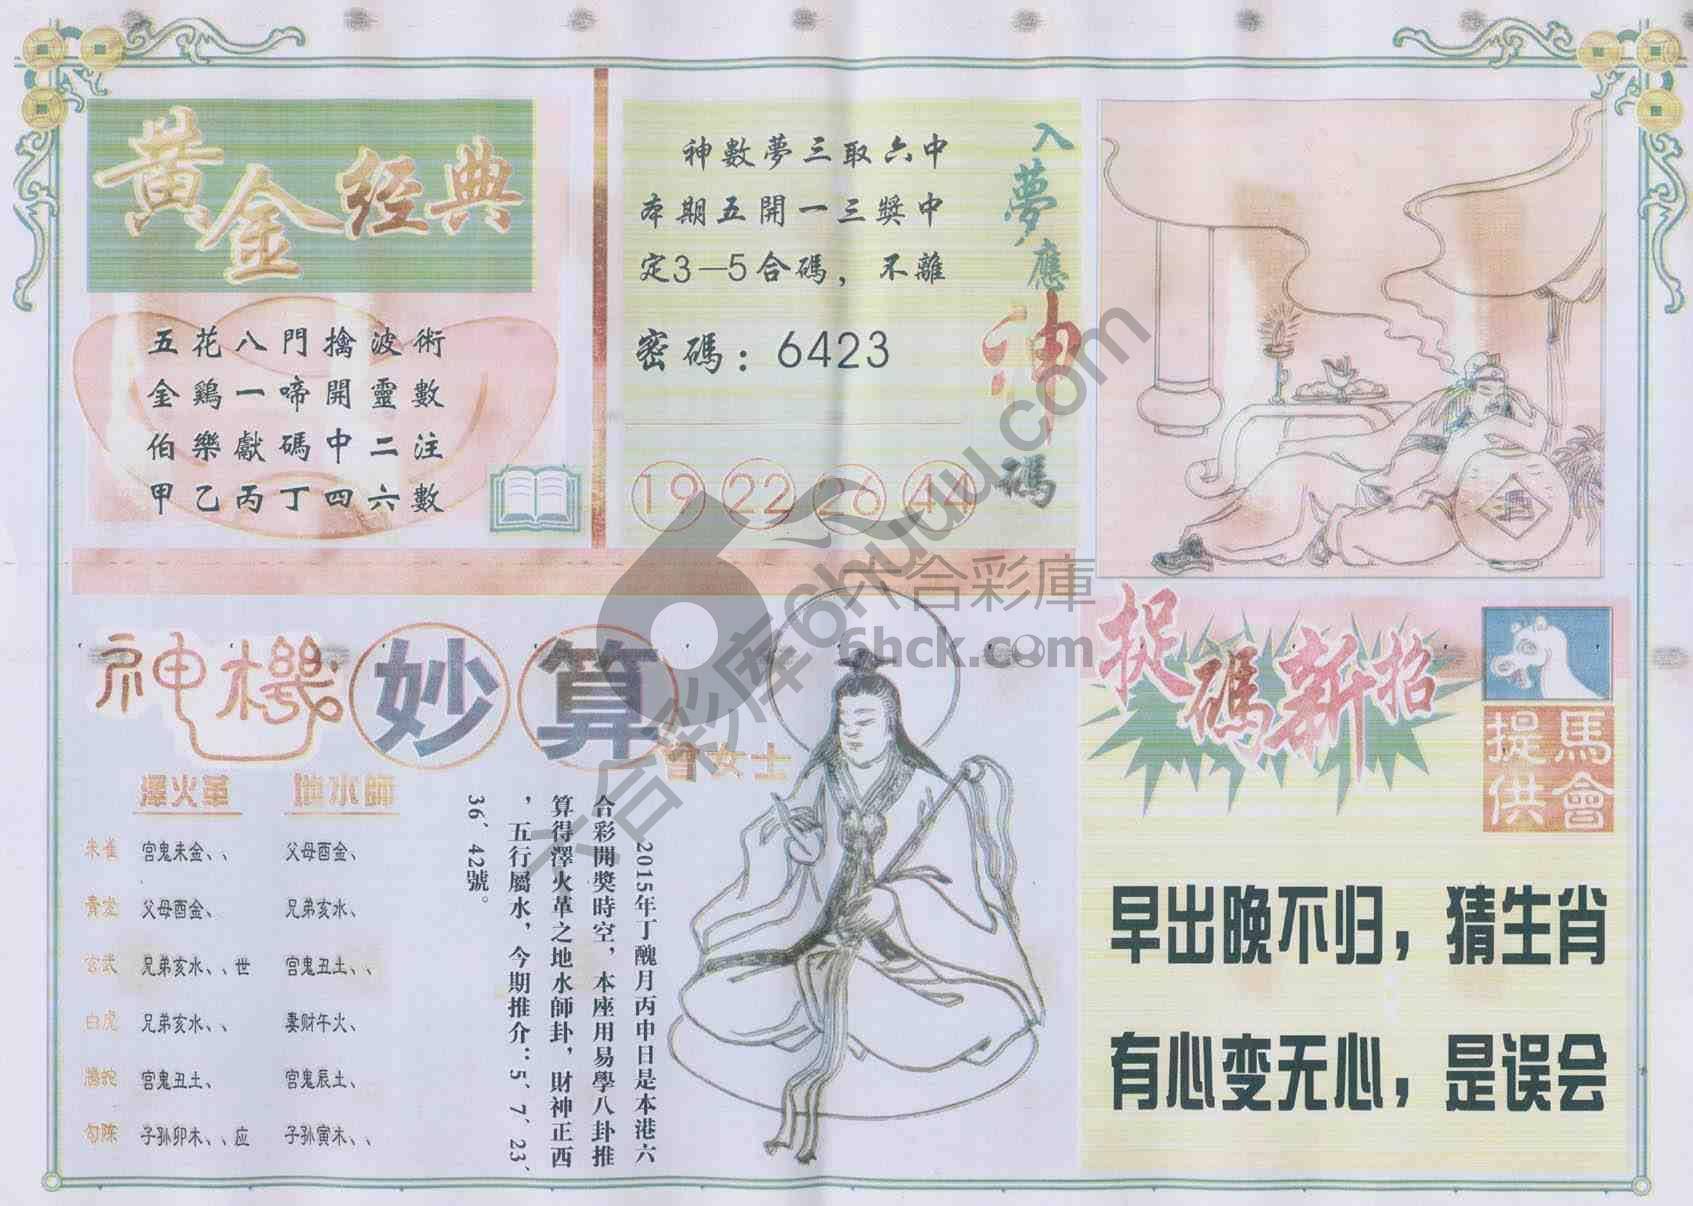 黄金经典
五花八門擒波術
金鷄一啼開靈數
伯樂獻碼中二注
甲乙丙丁四六數
入夢應神碼
神數夢三取六中
本期五開一三獎中
定3—5合碼，不離
密碼：6423
19 22 26 44
六合彩庫
6hck.com
六合彩库6huuu.com
神機妙算
曾女士
澤火革 地水師
朱雀 官鬼未金、、 父母酉金、
青龙 父母酉金、 兄弟亥水、
玄武 兄弟亥水、、世 官鬼丑土、、
白虎 兄弟亥水、、 妻财午火、
腾蛇 官鬼丑土、 官鬼辰土、
勾陈 子孙卯木、、应 子孙寅木、、
2015年丁醜月丙申日是本港六
合彩開獎時空，本座用易學八卦推
算得澤火革之地水師卦，財神正西
，五行屬水，今期推介：5、7、23、
36、42號。
捉碼新招
馬會
提供
早出晚不归，猜生肖
有心变无心，是误会